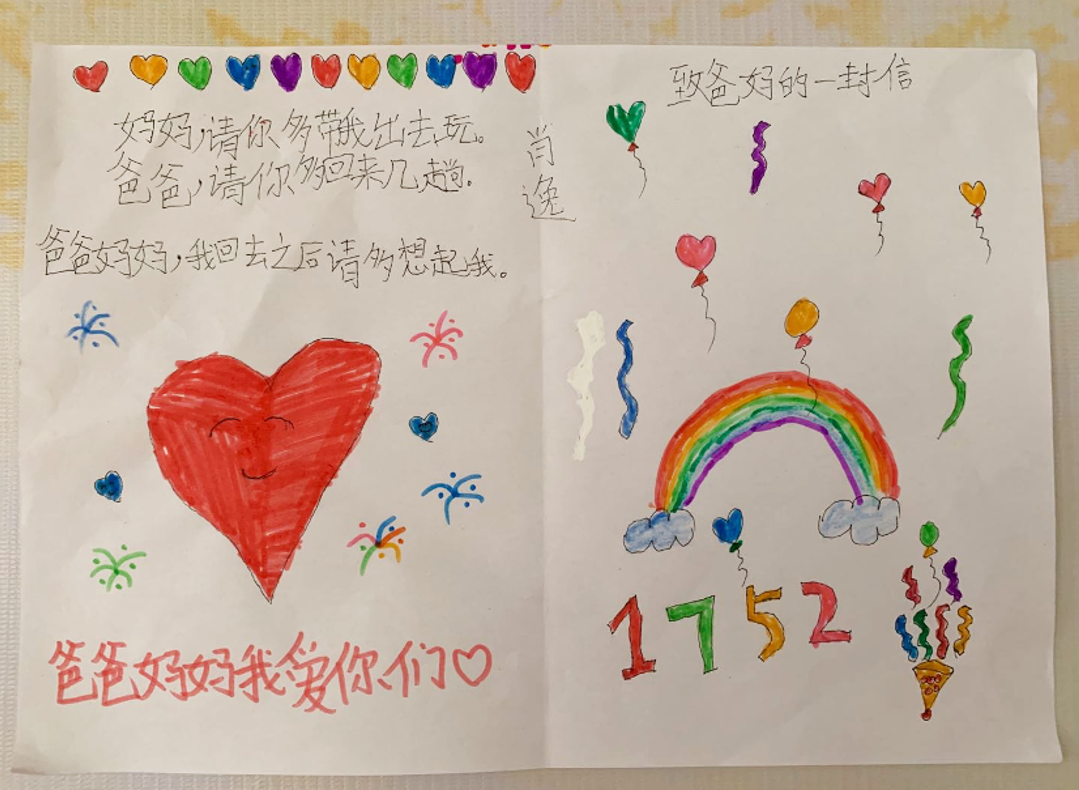 妈妈,请你多带我出去玩。
爸爸,请你多回来几趟.
爸爸妈妈,我回去之后请多想起我。
爸爸妈妈我爱你们
肖逸
致爸妈的一封信
1752